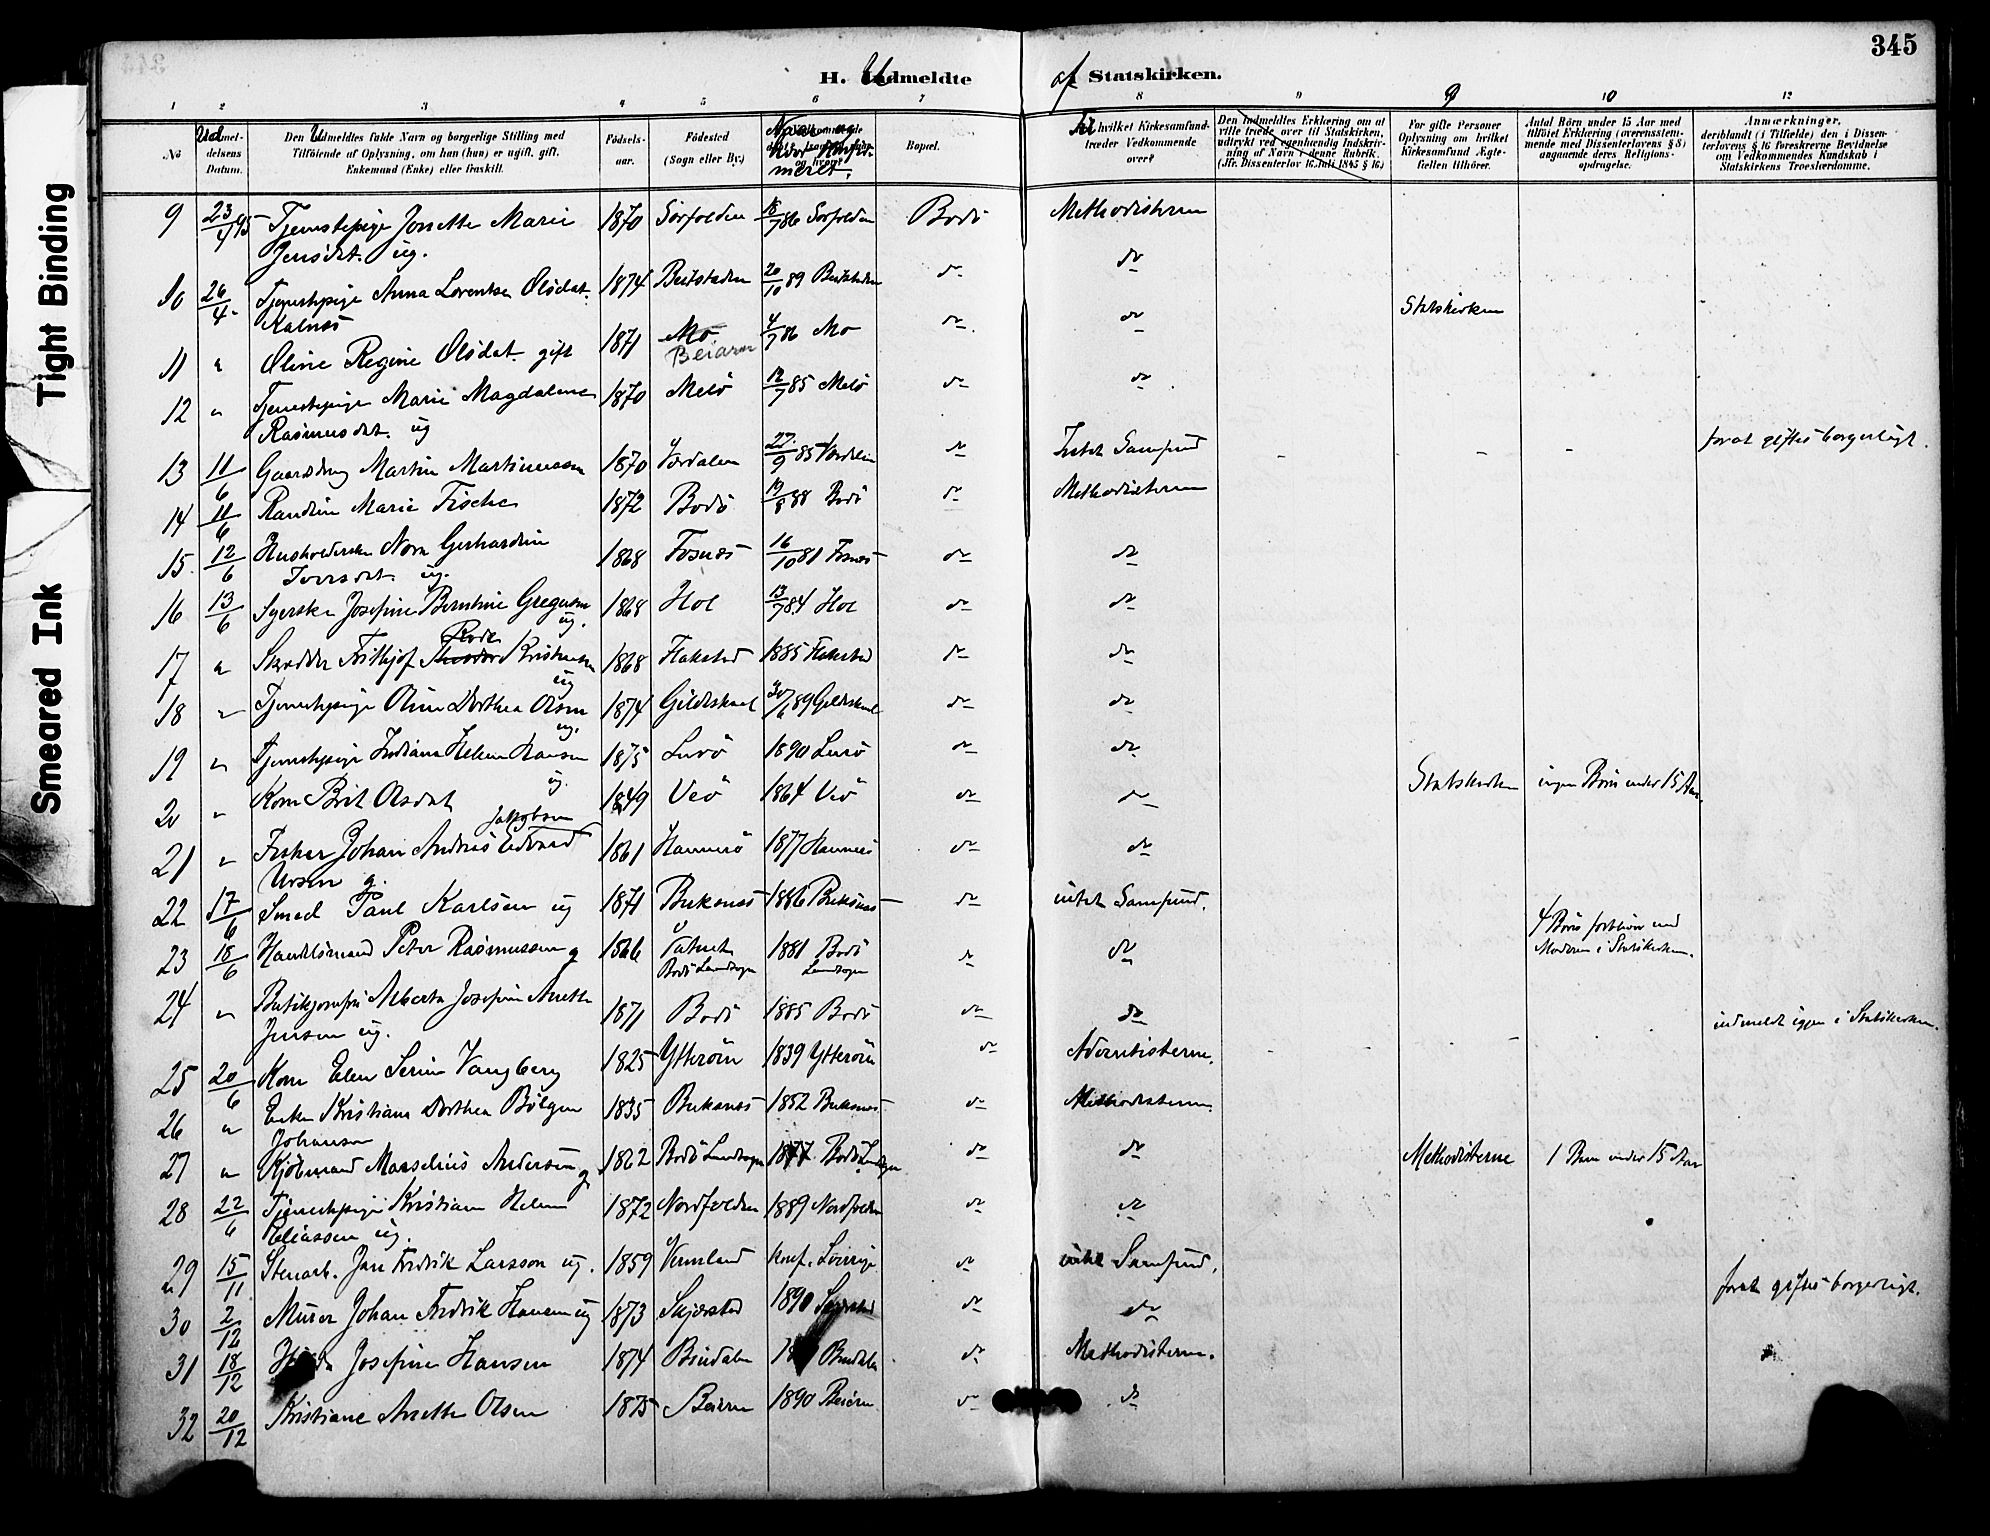 345
H. Udmeldte af Statskirken.
1 2 3 4 5 6 7 8 9 9 10 12
No
Udmel-
delsens
Datum.
Den Udmeldtes fulde Navn og borgerlige Stilling med
Tilföiende af Oplysning, om han (hun) er ugift, gift,
Enkemand (Enke) eller fraskilt.
Födsels-
aar.
Födested
(Sogn eller By.)
Naar og
hvor konfir-
meret.
Bopæl.
Til hvilket Kirkesamfund
træder Vedkommende
over?
Den Indmeldtes Erklæring om at
ville træde over til Statskirken,
udtrykt ved egenhændig Indskriv-
ning af Navn i denne Rubrik.
(Jfr. Dissenterlov 16 Juli 1845 § 16)
For gifte Personer
Oplysning om hvilket
Kirkesamfund Ægte-
fællen tilhörer.
Antal Börn under 15 Aar med
tilföiet Erklæring (overensstem-
mende med Dissenterlovens § 8)
angaaende deres Religions-
opdragelse.
Anmærkninger,
deriblandt (i Tilfælde) den i Dissen-
terlovens § 16 foreskrevne Bevidnelse
om Vedkommendes Kundskab i
Statskirkens Troeslærdomme.
9 23/4 95 Tjenestepige Jonette Marie 1870 Sörfolden 18/7 86 Sörfolden Bodö Methodisterne
Jensdat. ug.
10 26/4 Tjenestepige Anna Lorentse Olsdat. 1874 Beitstaden 20/10 89 Beitstaden do do
Kalnes
11 " Oline Regine Olsdat. gift 1871 Mo 4/7 86 Mo do do Statskirken
Beiarn
12 " Tjenestepige Marie Magdalene 1870 Melö 12/7 85 Melö do do
Rasmusdat. ug
13 11/6 Gaardsdreng Martin Martinussen 1870 Værdalen 27/9 85 Værdalen do Intet Samfund - - - forat giftes borgerligt.
14 11/6 Randine Marie Fischer 1872 Bodö 19/8 88 Bodö do Methodisterne
15 12/6 Husholderske Nora Gerhardine 1868 Fosnæs 16/10 81 Fosnæs do do
Iversdat. ug.
16 13/6 Syerske Josefine Berntine Gregusen 1868 Hol 13/7 84 Hol do do
ug.
17 " Skrædder Frithjof Theodor Kristensen 1868 Flakstad 1885 Flakstad do do
ug
18 " Tjenestepige Oline Dorthea Olsen 1874 Gildeskaal 30/6 89 Gildeskaal do do
ug.
19 " Tjenestepige Indiana Helene Hansen 1875 Lurö 1890 Lurö do do
ug.
20 " Kone Brit Olsdat 1849 Veö 1864 Veö do do Statskirken ingen Börn under 15 Aar.
Jakobsen
21 " Fisker Johan Andreas Edvard 1861 Hammerö 1877 Hammerö do do
g.
22 17/6 Smed Paul Karlsen ug 1871 Buksnæs 1886 Buksnæs do intet Samfund.
23 18/6 Handelsmand Peter Rasmussen g 1866 Vatnet 1881 Bodö do do 4 Börn forbliver med
Bodö Landsogn Landsogn Moderen i Statskirken.
24 " Butikjomfru Alberta Josefine Anette 1871 Bodö 1885 Bodö do do indmeldt igjen i Statskirken.
Jensen ug.
25 20/6 Kone Elen Serine Vangberg 1825 Ytterön 1839 Ytterön do Adventisterne. - -
26 " Enke Kristiane Dorthea Bölgen 1835 Buksnæs 1852 Buksnæs do Methodisterne.
Johansen
27 " Kjöbmand Marselius Andersen g 1862 Bodö Landsogn 1877 Bodö Landsogn do do Methodisterne 1 Barn under 15 Aar
28 22/6 Tjenestepige Kristiane Helene 1872 Nordfolden 1889 Nordfolden do do
Eliassen ug.
29 15/11 Stenarb. Jan Fredrik Larsson ug. 1859 Vermland konf. Sverrige do intet Samfund. forat giftes borgerligt.
30 2/12 Murer Johan Fredrik Hansen ug 1873 Skjærstad 1890 Skjærstad do do
31 18/12 Josefine Hansen 1874 Bindalen Bindalen do Methodisterne.
32 20/12 Kristiane Anette Olsen 1875 Beiern 1890 Beiern do do
Tight Binding
Smeared Ink